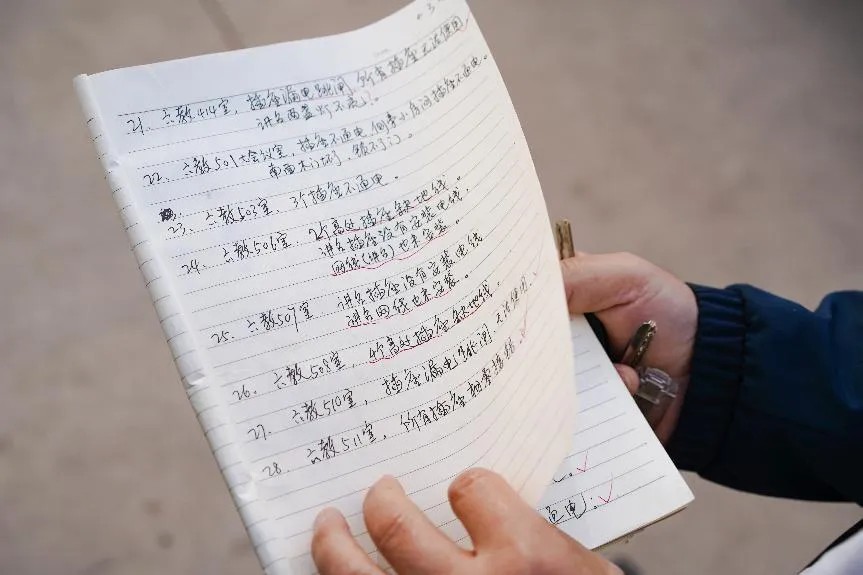 21、六教414室，插座漏电跳闸，所有插座无法使用，
讲台两盏灯不亮了。
22、六教501大会议室，插座不通电，侧旁小房间插座不通电。
南面木门坏了，锁不了门。
23、六教503室，3个插座不通电。
24、六教506室 2个高处插座缺地线。
讲台插座没有安装电线，
网线(讲台)也未安装。
25、六教507室 讲台插座没有安装电线
讲台网线也未安装。
26、六教508室，4个高处插座缺地线。
27、六教510室，插座漏电跳闸 无法使用。
28、六教511室，所有插座相零接错。
通电。